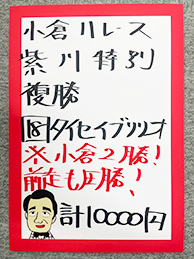 小倉11レース
紫川特別
複勝
⑱タイセイブリリオ
※小倉2勝!
前走も圧勝!
計10000円